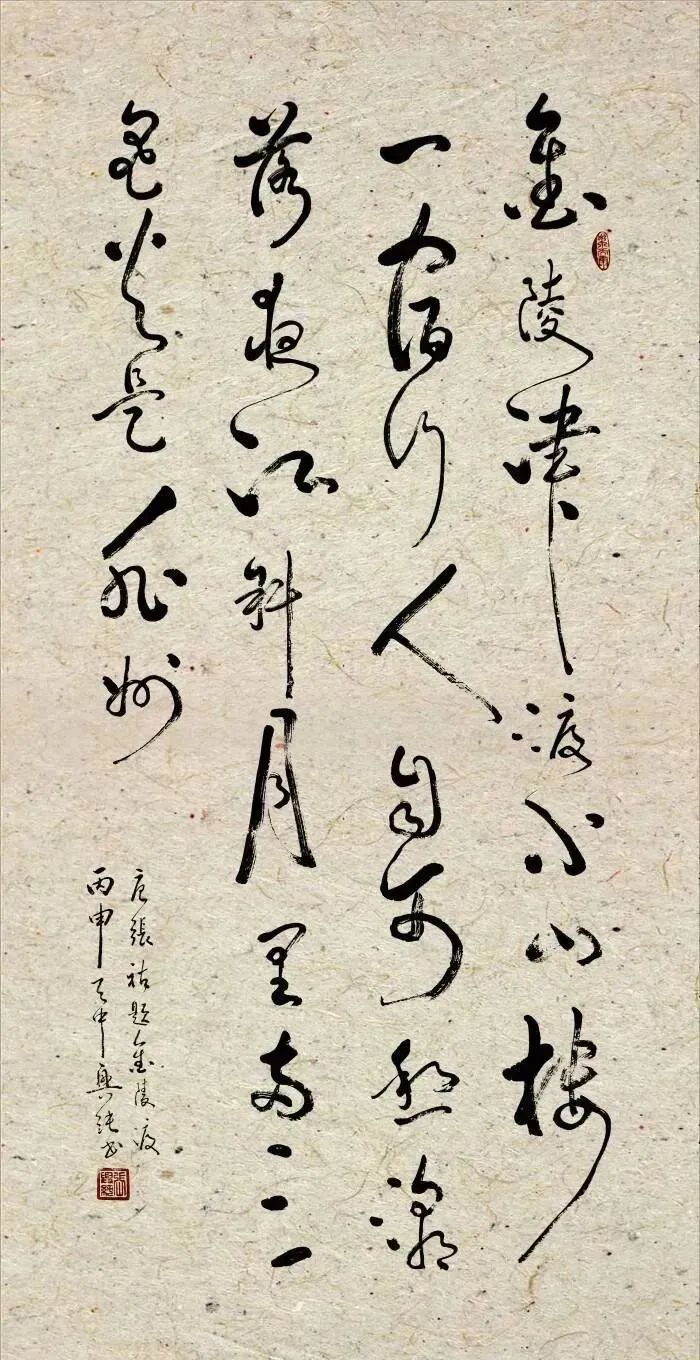 金陵津渡小山楼
一宿行人自可愁潮
落夜江斜月里两三
星火是瓜州
唐张祜题金陵渡
丙申天中兴纯书